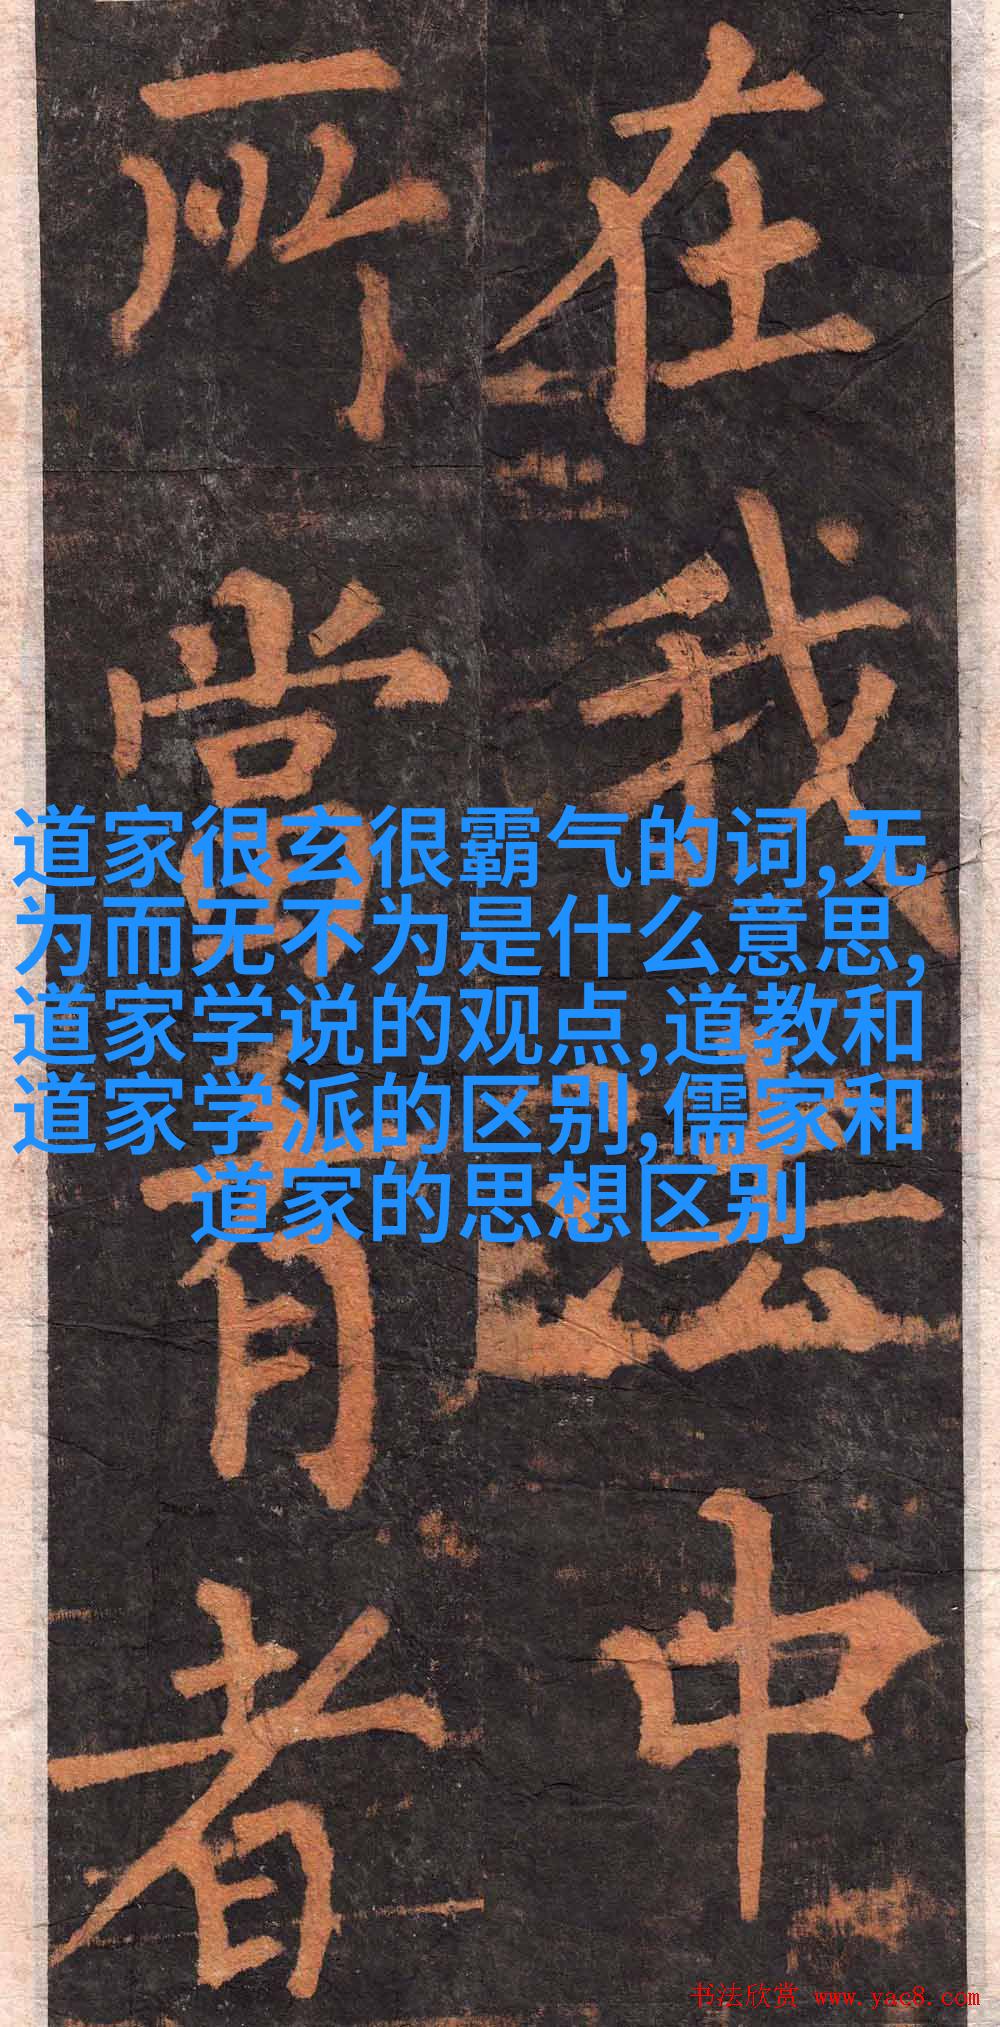 在我法中
所當有者
道家很玄很霸气的词,无
为而无不为是什么意思,
道家学说的观点,道教和
道家学派的区别,儒家和
道家的思想区别
书法欣赏 www.yac8.com